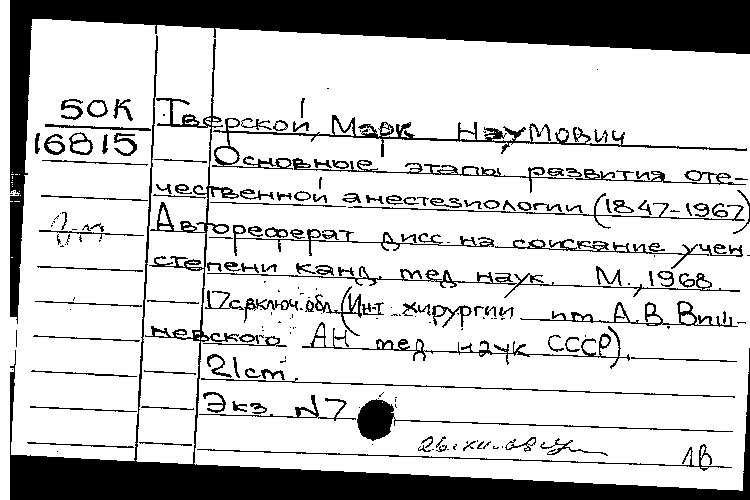 50К
16815
Тверской, Марк Наумович
Основные этапы развития оте-
чественной анестезиологии (1847-1967)
Автореферат дисс. на соискание учен
степени канд. мед. наук. М., 1968.
17с.включ.обл. (Ин-т хирургии им. А.В. Виш-
невского АН мед. наук СССР).
21см.
Экз. N7
1В